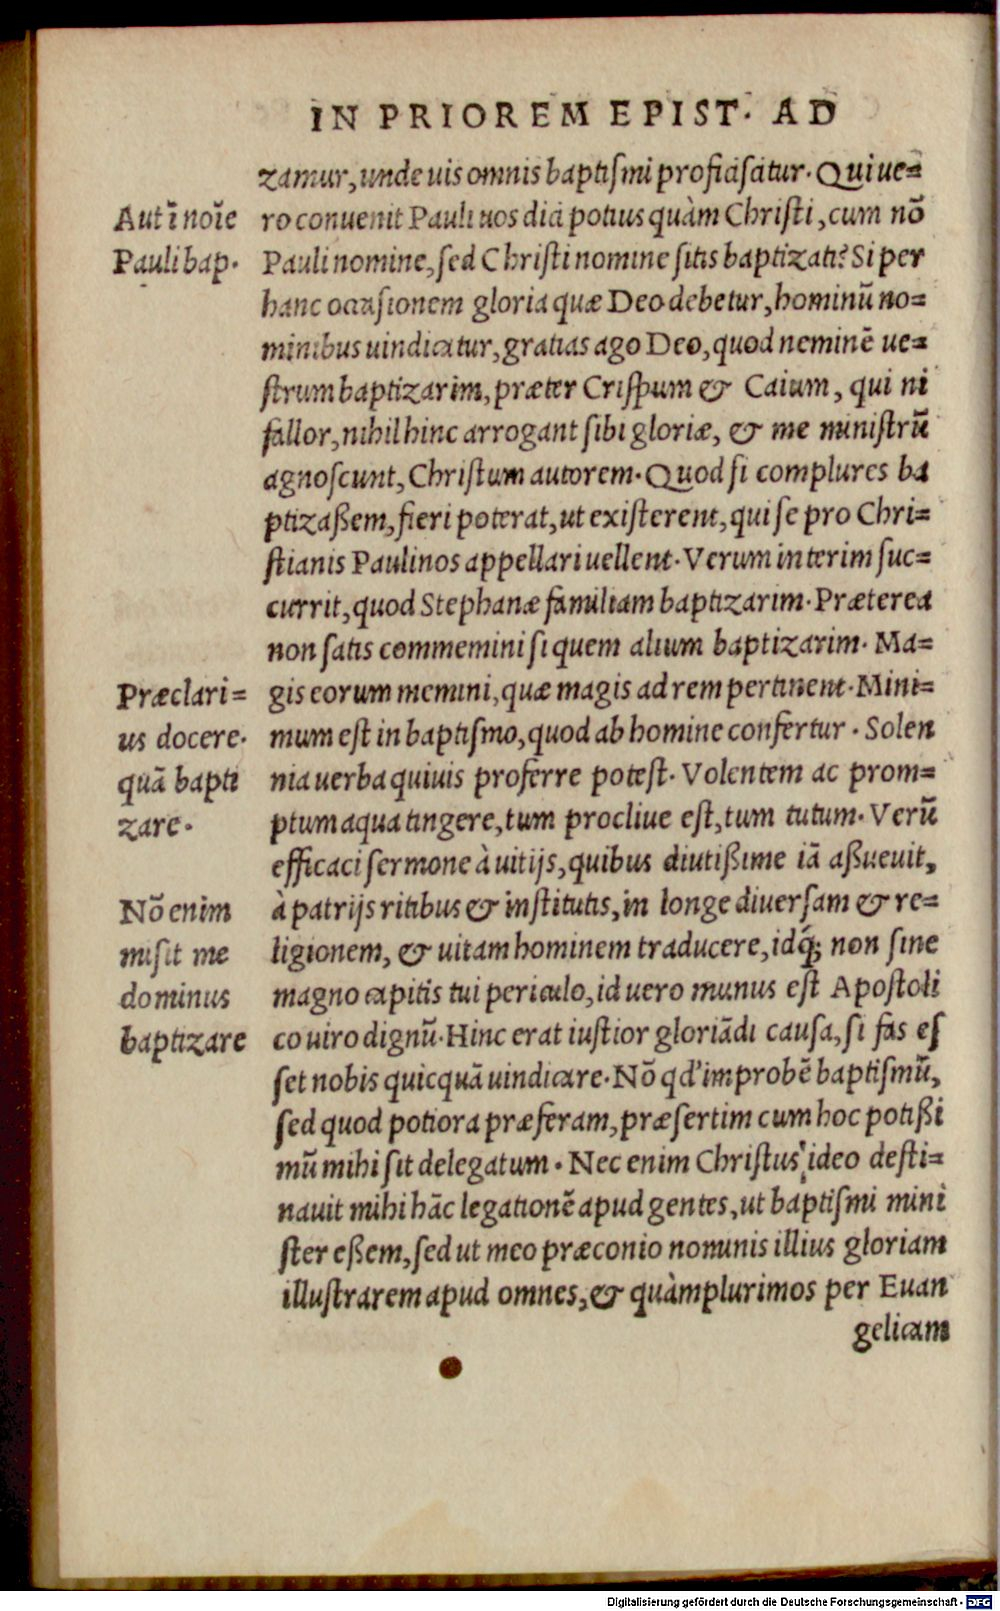 IN PRIOREM EPIST. AD
zamur, unde uis omnis baptismi proficiscatur. Qui ue=
Aut ĩ noĩe
ro conuenit Pauli uos dici potius quàm Christi, cum nõ
Pauli bap.
Pauli nomine, sed Christi nomine sitis baptizati? Si per
hanc occasionem gloria quæ Deo debetur, hominũ no=
minibus uindicatur, gratias ago Deo, quod neminẽ ue=
strum baptizarim, præter Crispum & Caium, qui ni
fallor, nihil hinc arrogant sibi gloriæ, & me ministrũ
agnoscunt, Christum autorem. Quod si complures ba
ptizaßem, fieri poterat, ut existerent, qui se pro Chri=
stianis Paulinos appellari uellent. Verum interim suc=
currit, quod Stephanæ familiam baptizarim. Præterea
non satis commemini si quem alium baptizarim. Ma=
Præclari=
gis eorum memini, quæ magis ad rem pertinent. Mini=
us docere.
mum est in baptismo, quod ab homine confertur. Solen
quã bapti
nia uerba quiuis proferre potest. Volentem ac prom=
zare.
ptum aqua tingere, tum procliue est, tum tutum. Verũ
efficaci sermone à uitijs, quibus diutißime iã aßueuit,
Nõ enim
à patrijs ritibus & institutis, in longe diuersam & re=
misit me
ligionem, & uitam hominem traducere, idq́; non sine
dominus
magno capitis tui periculo, id uero munus est Apostoli
baptizare
co uiro dignũ. Hinc erat iustior gloriãdi causa, si fas es
set nobis quicquã uindicare. Nõ qd' improbẽ baptismũ,
sed quod potiora præferam, præsertim cum hoc potißi
mũ mihi sit delegatum. Nec enim Christus ideo desti=
nauit mihi hãc legationẽ apud gentes, ut baptismi mini
ster eßem, sed ut meo præconio nominis illius gloriam
illustrarem apud omnes, & quàmplurimos per Euan
gelicam
Digitalisierung gefördert durch die Deutsche Forschungsgemeinschaft - DFG